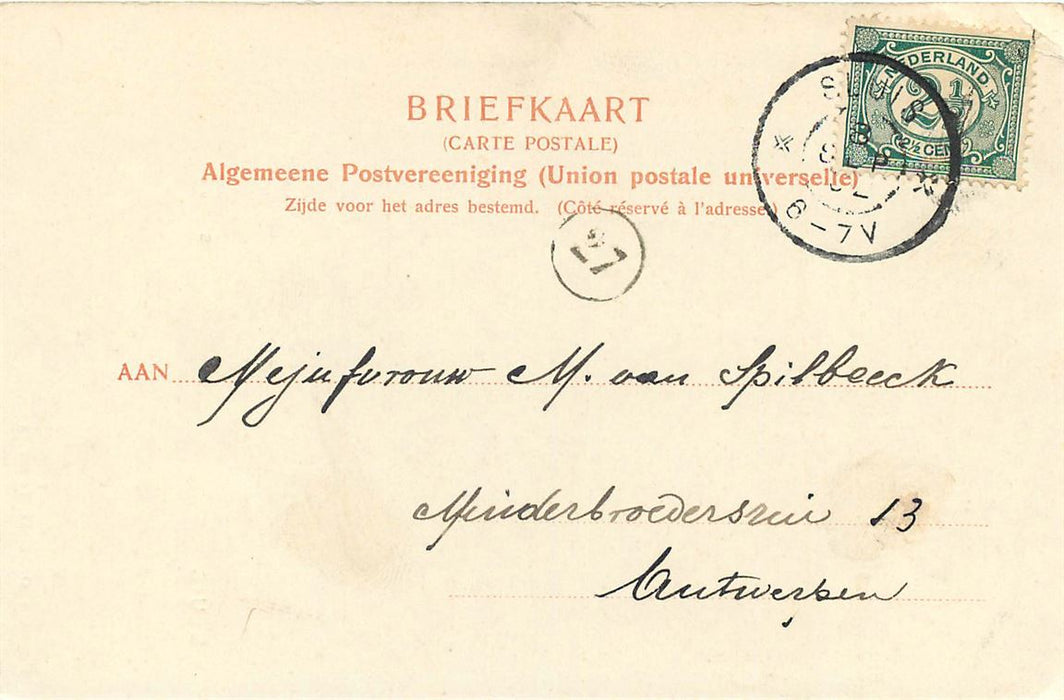 BRIEFKAART
(CARTE POSTALE)
Algemeene Postvereeniging (Union postale universelle)
Zijde voor het adres bestemd. (Côté réservé à l'adresse.)
NEDERLAND
2½
(2½ CENT)
SLUIS
8
SEP
02
6-7V
27
AAN Mejufvrouw M. van Spilbeeck
Minderbroedersrui 13
Antwerpen